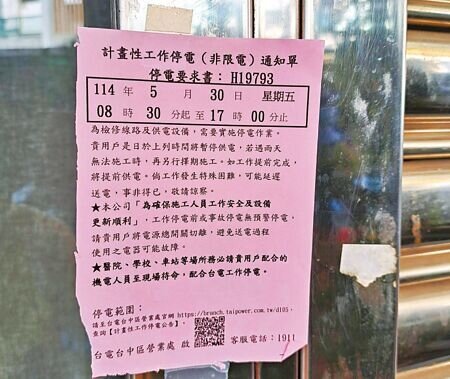 計畫性工作停電（非限電）通知單
停電要求書： H19793
114 年 5 月 30 日 星期五
08 時 30 分起至 17 時 00 分止
為檢修線路及供電設備，需要實施停電作業。
貴用戶是日於上列時間將暫停供電，若遇雨天
無法施工時，再另行擇期施工。如工作提前完成，
將提前供電。倘工作發生特殊困難，可能延遲
送電，事非得已，敬請諒察。
★本公司「為確保施工人員工作安全及設備
更新順利」，工作停電前或事故停電無預警停電，
請貴用戶將電源總開關切離，避免送電過程
使用之電器可能故障。
★醫院、學校、車站等場所務必請貴用戶配合的
機電人員至現場待命，配合台電工作停電。
停電範圍：
請至台電台中區營業處官網 https://branch.taipower.com.tw/d105，
查詢【計畫性工作停電公告】。
台電台中區營業處 啟 客服電話：1911